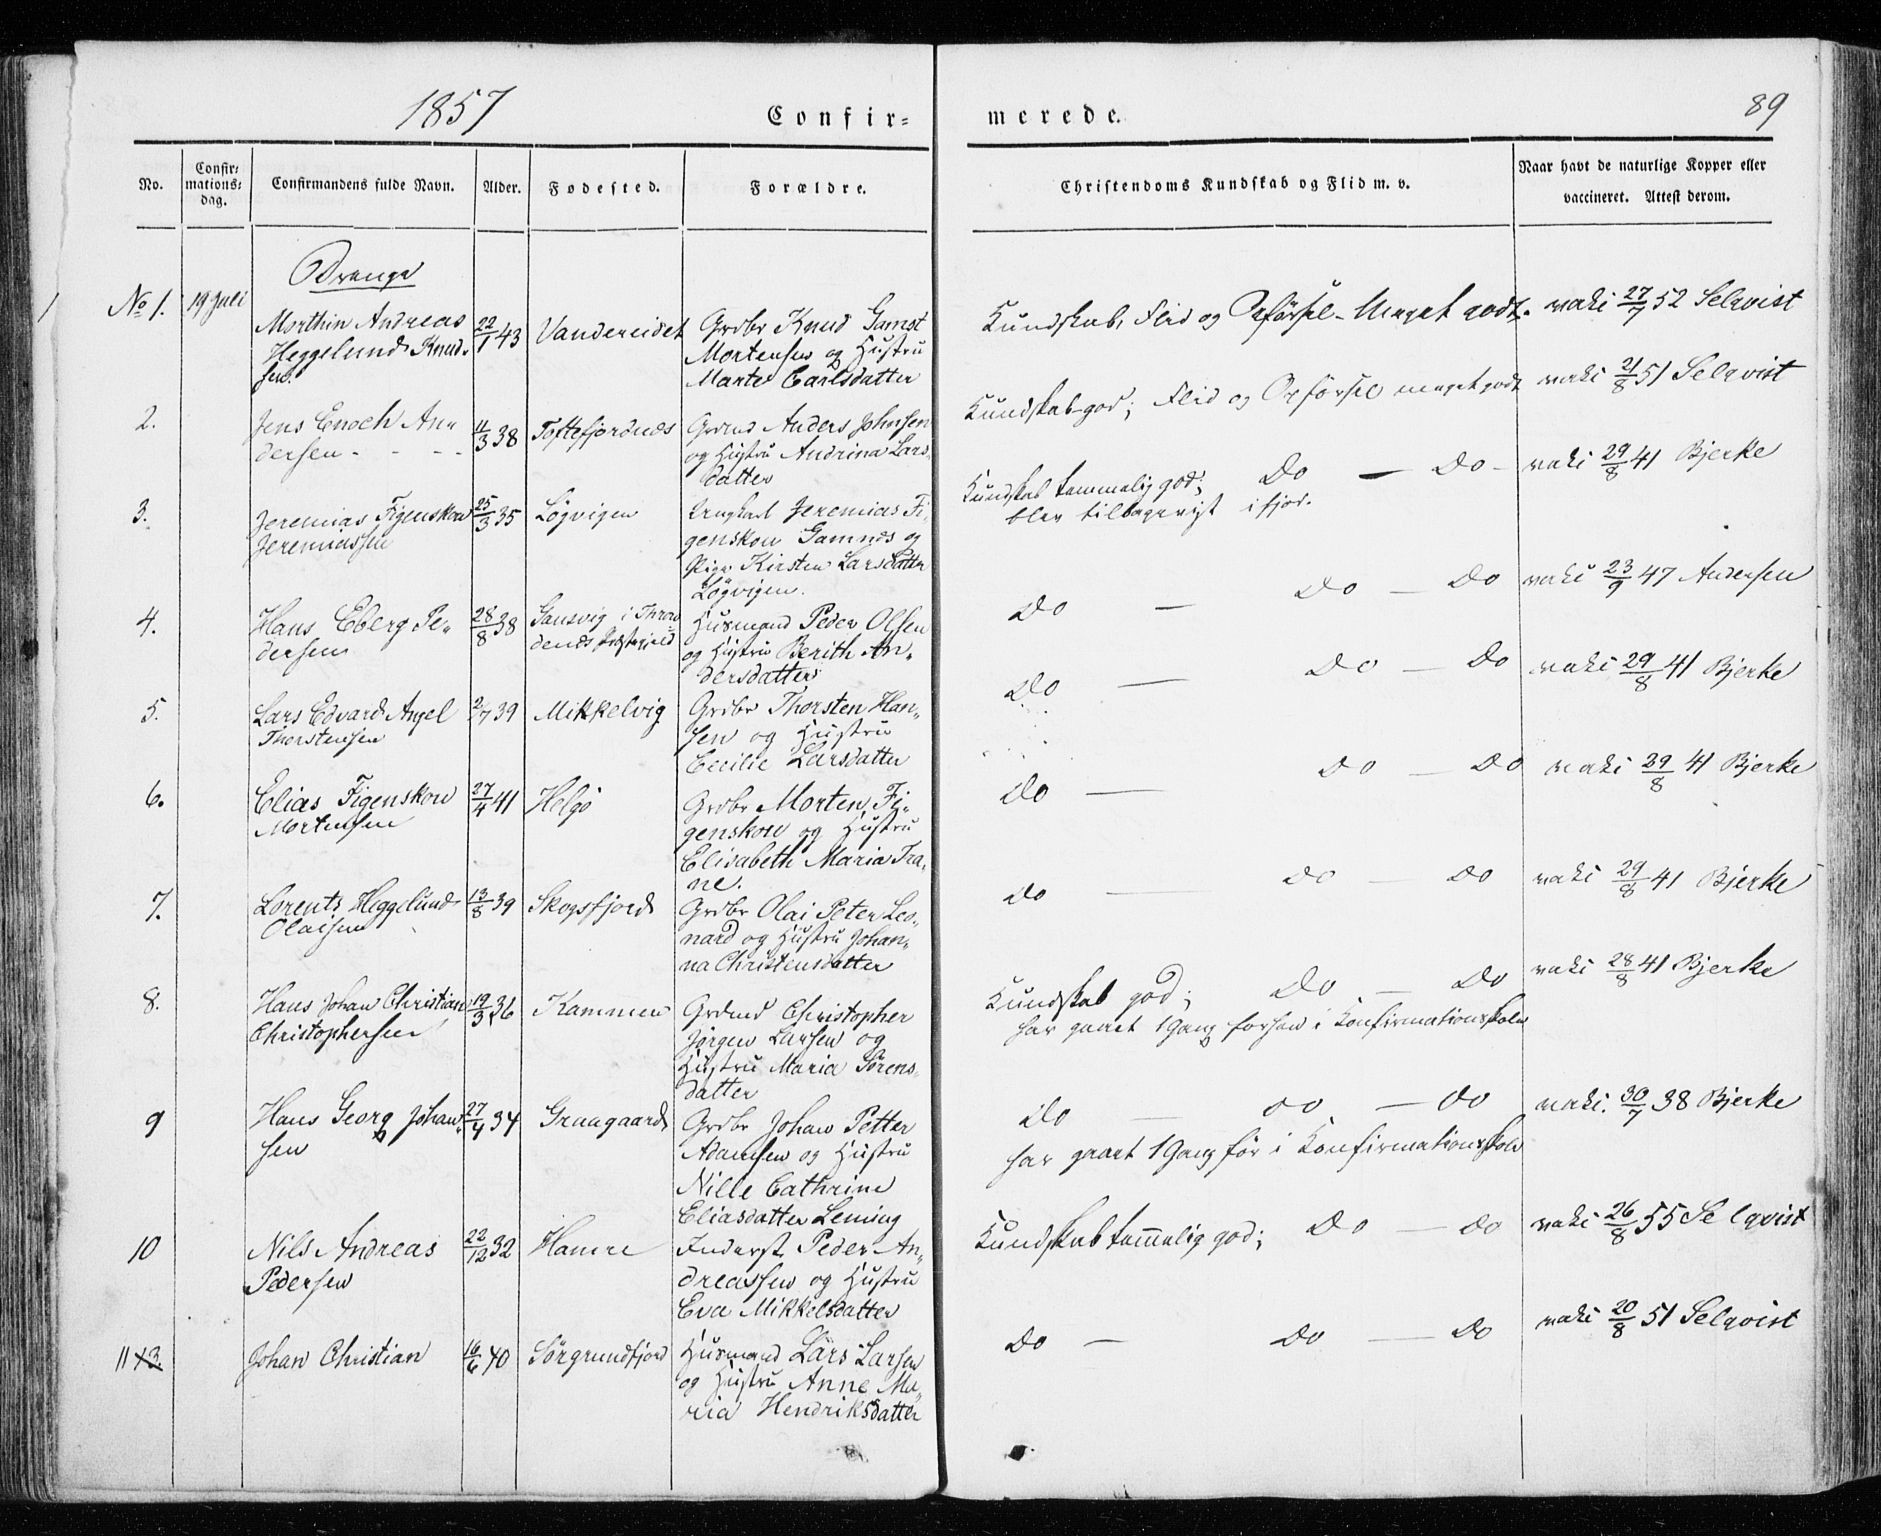 1857
Confir=
merede.
89
No.
Confir-
mations-
dag.
Confirmandens fulde Navn.
Alder.
Fødested.
Forældre.
Christendoms Kundskab og Flid m. v.
Naar havt de naturlige Kopper eller
vaccineret. Attest derom.
Drenge
No 1. 19 Juli
Morthin Andreas
Heggelund Knud-
sen.
22/1 43
Vandereidet
Grdbr Knud Gamst
Mortensen og Hustru
Marte Carlsdatter
Kundskab, Flid og Opførsel - Meget godt.
vaks 27/7 52 Selqvist
2.
Jens Enoch An-
dersen - - - -
11/3 38
Toftefjordnes
Grdmd Anders Johnsen
og Hustru Andrina Lars-
datter
Kundskab god; Flid og Opførsel meget godt
vaks 21/8 51 Selqvist
3.
Jeremias Figenskou
Jeremiassen
25/3 35
Løgvigen
Ungkarl Jeremias Fi-
genskou Gamnes og
Pige Kirsten Larsdatter
Løgvigen.
Kundskab temmelig god; Do - Do -
blev tilbagevist ifjor.
vaks 29/8 41 Bjerke
4.
Hans Eberg Pe-
dersen
28/8 38
Gausvig i Thron-
denæs Præstegjeld
Husmand Peder Olsen
og Hustru Berith An-
dersdatter
Do - Do - Do
vaks 23/9 47 Andersen
5.
Lars Edvard Angel
Thorstensen
2/7 39
Mikkelvig
Grdbr Thorsten Han-
sen og Hustru
Cecilie Larsdatter
Do - Do - Do
vaks 29/8 41 Bjerke
6.
Elias Figenskou
Mortensen
27/4 41
Helgø
Grdbr Morten Fi-
genskou og Hustru
Elisabeth Maria Tra-
ne.
Do - Do - Do
vaks 29/8 41 Bjerke
7.
Lorents Heggelund
Olaisen
13/8 39
Skogsfjord
Grdbr Olai Peter Leo-
nard og Hustru Johan-
na Christensdatter
Do - Do - Do
vaks 29/8 41 Bjerke
8.
Hans Johan Christian
Christophersen
19/3 36
Kammen
Grdmd Christopher
Jørgen Larsen og
Hustru Maria Sørens-
datter
Kundskab god; Do - Do
har gaaet 1 Gang forhen i Konfirmationsskole
vaks 28/8 41 Bjerke
9
Hans Georg Johan-
sen
27/4 34
Graagaard
Grdbr Johan Petter
Adamsen og Hustru
Nille Cathrine
Eliasdatter Leming
Do Do - Do
har gaaet 1 Gang før i Konfirmationsskole
vaks. 30/7 38 Bjerke
10
Nils Andreas
Pedersen
22/12 32
Hamre
Inderst Peder An-
dreassen og Hustru
Eva Mikkelsdatter
Kundskab temmelig god; Do - Do
vaks 26/8 55 Selqvist
11
Johan Christian
16/6 40
Sørgrundfjord
Husmand Lars Larsen
og Hustru Anne Ma-
ria Hendriksdatter
Do - Do - Do
vaks 20/8 51 Selqvist